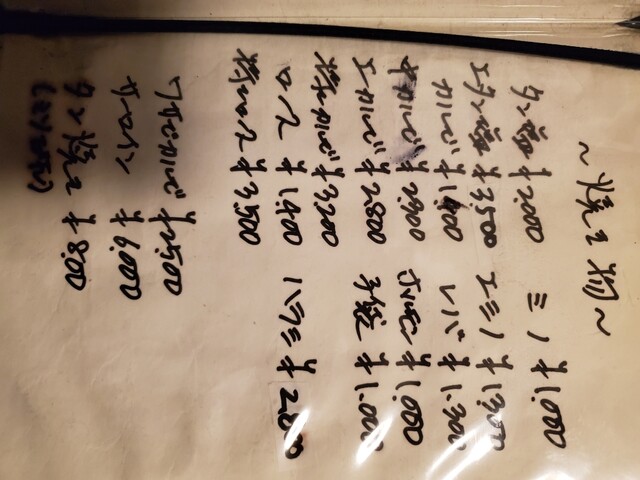 ～焼き物～
タン塩 ¥2,000
上タン塩 ¥3,500
カルビ ¥1,400
中カルビ
上カルビ ¥2,800
特上カルビ ¥3,200
ロース ¥1,400
特上ロース ¥3,500
ミノ ¥1,000
上ミノ
レバー ¥1,300
ホルモン ¥1,000
子袋 ¥1,000
ハラミ ¥2,800
カルビ ¥2,500
サーロイン ¥6,000
タン焼き ¥8,000